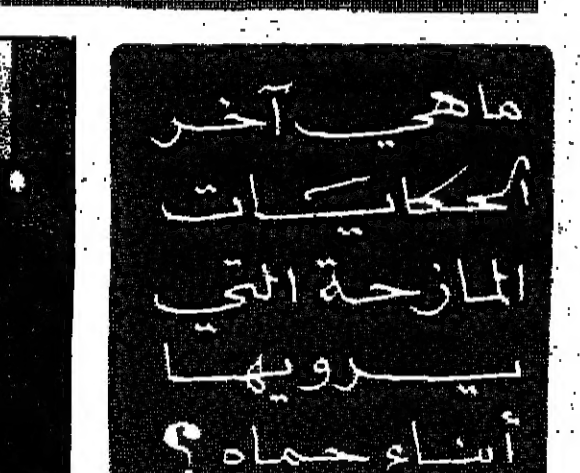 ما هي آخر
الحكايات
المازحة التي
يرويها
أبناء حماه ؟